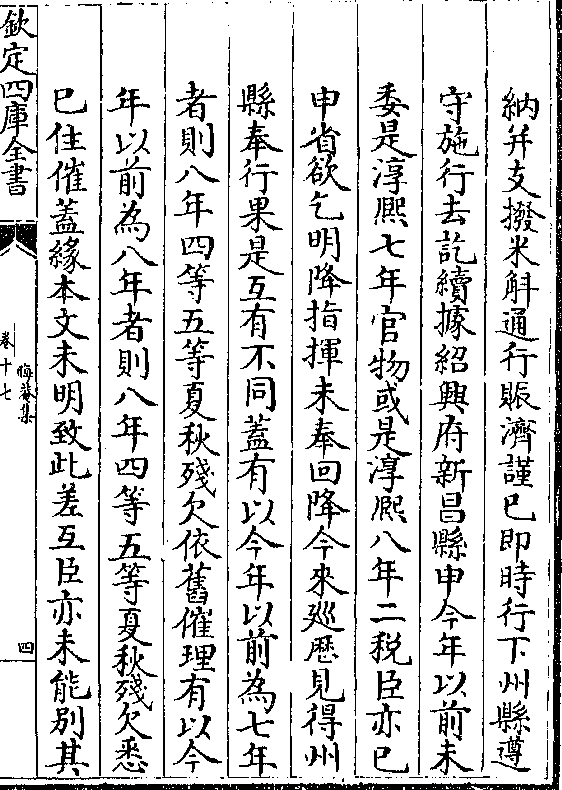 納并支撥米斛通行賑濟謹已即時行下州縣遵
守施行去訖續據紹興府新昌縣申今年以前未
委是淳熈七年官物或是淳熈八年二税臣亦已
申省欲乞明降指揮未奉回降今來廵歴見得州
縣奉行果是互有不同蓋有以今年以前為七年
者則八年四等五等夏秋殘欠依舊催理有以今
年以前為八年者則八年四等五等夏秋殘欠悉
已住催蓋緣本文未明致此差互臣亦未能别其
欽定四庫全書
晦菴集
卷十七
四